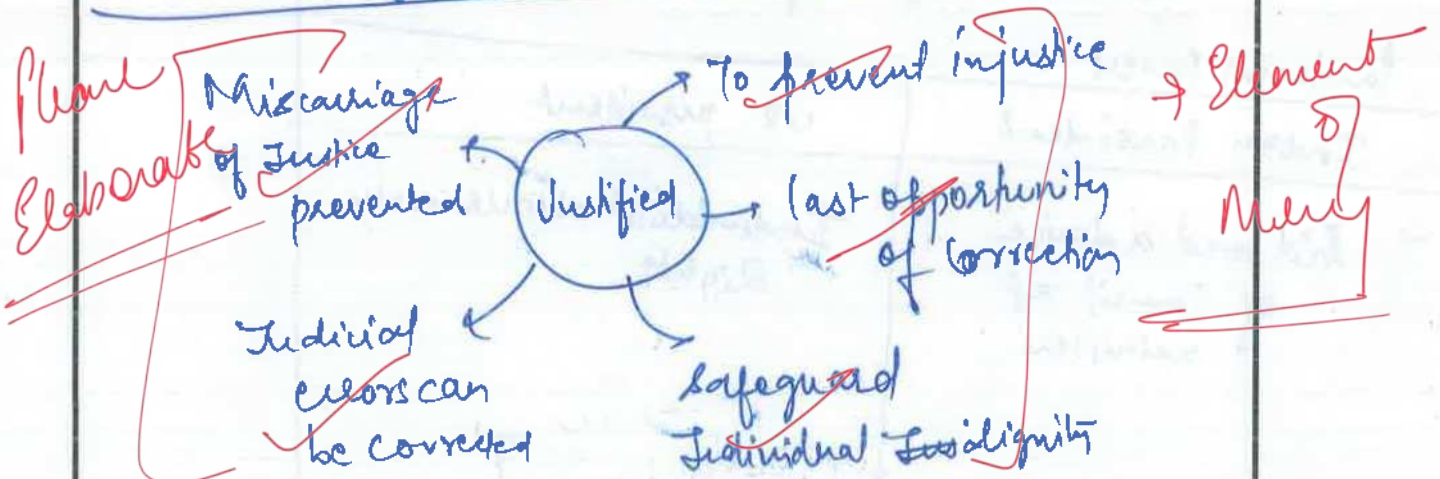 Please
Elaborate
Miscarriage
of Justice
prevented
Justified
To prevent injustice
last opportunity
of correction
Judicial
errors can
be corrected
safeguard
Individual dignity
→ Element
of
Mercy